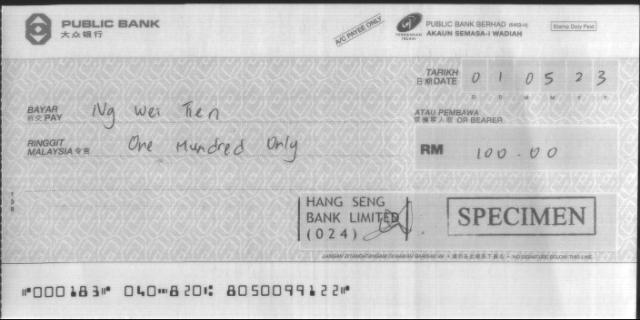 PUBLIC BANK
大众银行
A/C PAYEE ONLY
PUBLIC BANK BERHAD
AKAUN SEMASA-i WADIAH
Stamp Duty Paid
TARIKH
日期 DATE 0 1 0 5 2 3
D D M M Y Y
BAYAR
PAY Ng Wei Tien
ATAU PEMBAWA
OR BEARER
RINGGIT
MALAYSIA One Hundred Only
RM 100.00
HANG SENG
BANK LIMITED
(024)
SPECIMEN
NO SIGNATURE BELOW THIS LINE
⑈000183⑈ 040⑉820⑆ 8050099122⑈